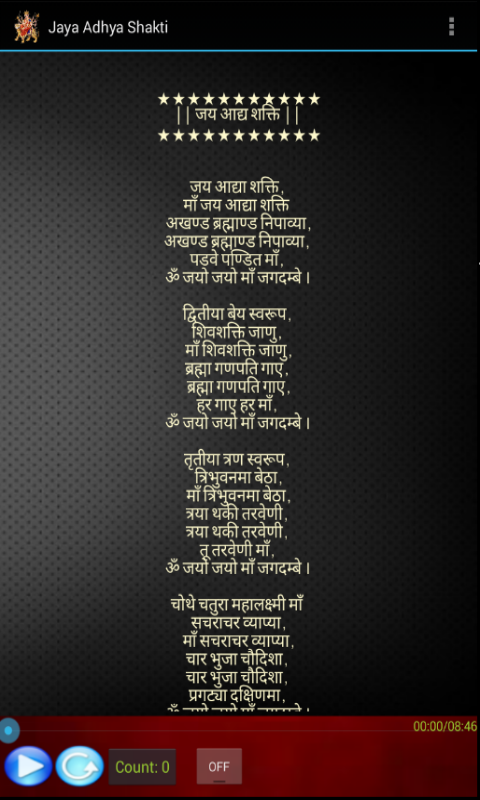 Jaya Adhya Shakti
★★★★★★★★★★★
|| जय आद्य शक्ति ||
★★★★★★★★★★★
जय आद्या शक्ति,
माँ जय आद्या शक्ति
अखण्ड ब्रह्माण्ड निपाव्या,
अखण्ड ब्रह्माण्ड निपाव्या,
पडवे पण्डित माँ,
ॐ जयो जयो माँ जगदम्बे।
द्वितीया बेय स्वरूप,
शिवशक्ति जाणु,
माँ शिवशक्ति जाणु,
ब्रह्मा गणपति गाए,
ब्रह्मा गणपति गाए,
हर गाए हर माँ,
ॐ जयो जयो माँ जगदम्बे।
तृतीया त्रण स्वरूप,
त्रिभुवनमा बेठा,
माँ त्रिभुवनमा बेठा,
त्रया थकी तरवेणी,
त्रया थकी तरवेणी,
तू तरवेणी माँ,
ॐ जयो जयो माँ जगदम्बे।
चोथे चतुरा महालक्ष्मी माँ
सचराचर व्याप्या,
माँ सचराचर व्याप्या,
चार भुजा चौदिशा,
चार भुजा चौदिशा,
प्रगट्या दक्षिणमा,
00:00/08:46
Count: 0
OFF